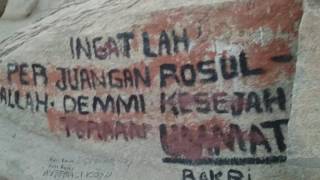 INGAT LAH
PER JUANGAN ROSUL-
ALLAH. DEMMI KESEJAH
TERAAN UMMAT
BAKRI